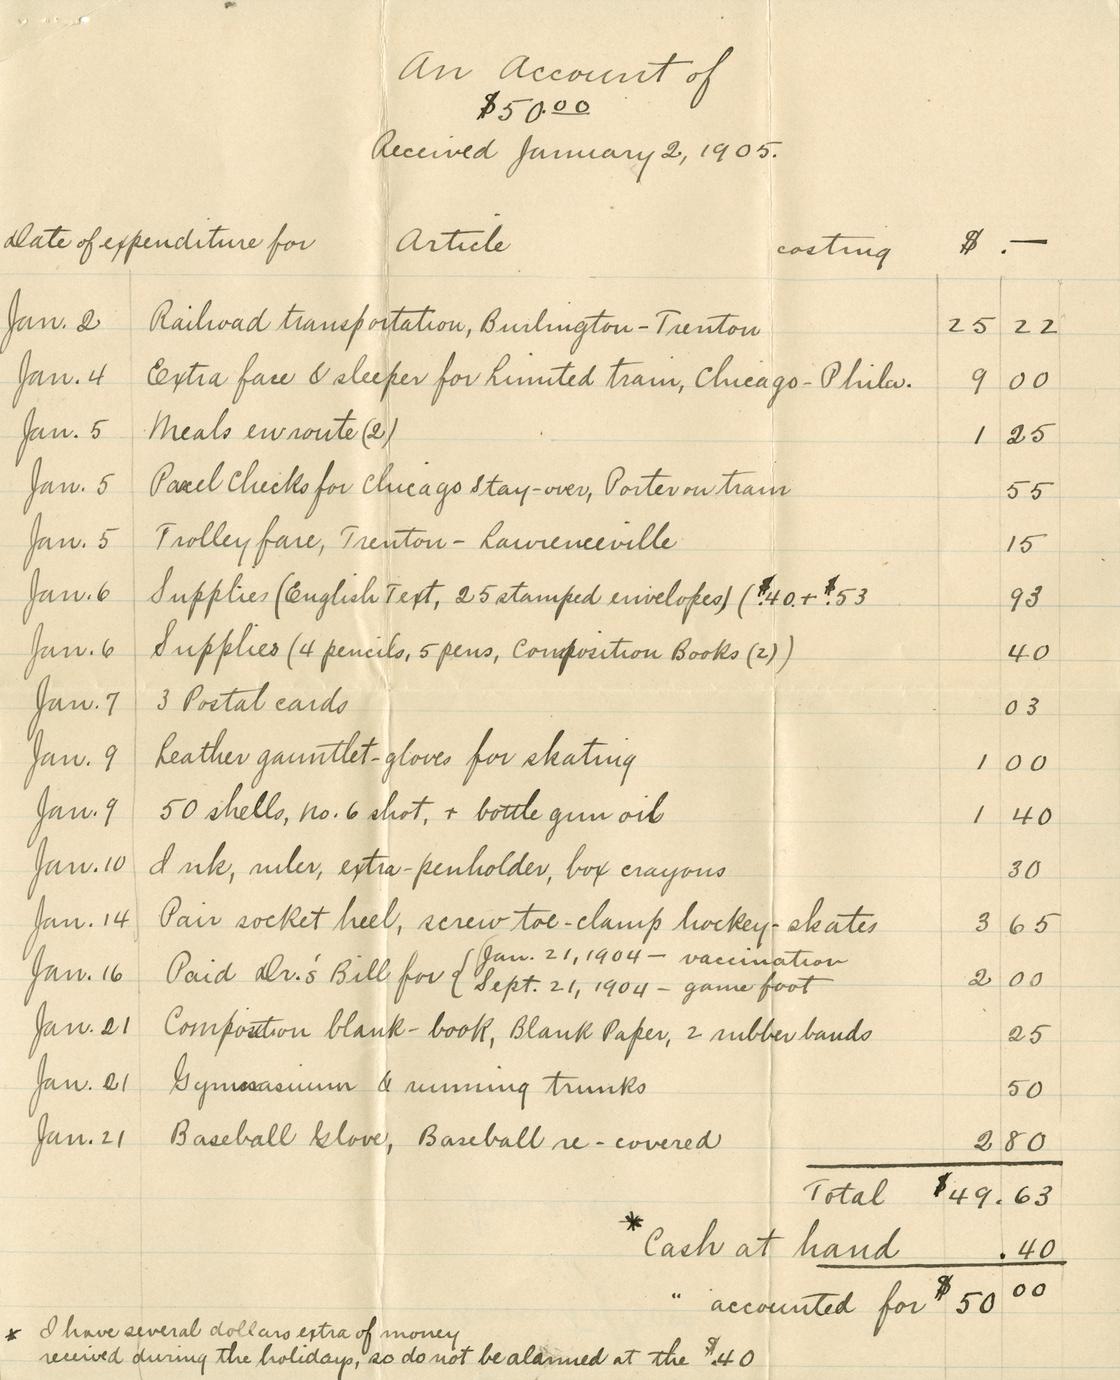 An Account of
$50.00
Received January 2, 1905.
Date of expenditure for Article costing $ .—
Jan. 2 Railroad transportation, Burlington - Trenton 25 22
Jan. 4 Extra fare & sleeper for Limited train, Chicago - Phila. 9 00
Jan. 5 Meals en route (2) 1 25
Jan. 5 Parcel Checks for Chicago Stay-over, Porter on train 55
Jan. 5 Trolley fare, Trenton - Lawrenceville 15
Jan. 6 Supplies (English Text, 25 stamped envelopes) ($.40 + $.53 93
Jan. 6 Supplies (4 pencils, 5 pens, Composition Books (2)) 40
Jan. 7 3 Postal cards 03
Jan. 9 Leather gauntlet-gloves for skating 1 00
Jan. 9 50 shells, no. 6 shot, + bottle gun oil 1 40
Jan. 10 Ink, ruler, extra-penholder, box crayons 30
Jan. 14 Pair socket heel, screw toe-clamp hockey-skates 3 65
Jan. 16 Paid Dr.'s Bill for { Jan. 21, 1904 - vaccination
Sept. 21, 1904 - game foot 2 00
Jan. 21 Compostion blank-book, Blank Paper, 2 rubber bands 25
Jan. 21 Gymnasium & running trunks 50
Jan. 21 Baseball Glove, Baseball re-covered 2 80
Total $49.63
* Cash at hand .40
" accounted for $50 00
* I have several dollars extra of money
received during the holidays, so do not be alarmed at the $.40